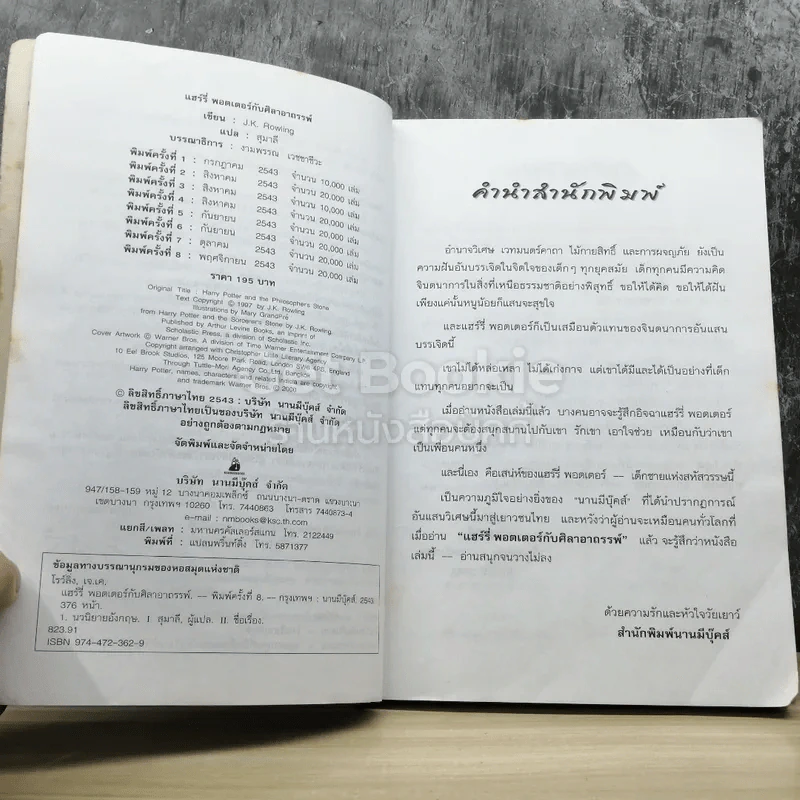 แฮร์รี่ พอตเตอร์กับศิลาอาถรรพ์
เขียน : J.K. Rowling
แปล : สุมาลี
บรรณาธิการ : งามพรรณ เวชชาชีวะ
พิมพ์ครั้งที่ 1 : กรกฎาคม 2543 จำนวน 10,000 เล่ม
พิมพ์ครั้งที่ 2 : สิงหาคม 2543 จำนวน 20,000 เล่ม
พิมพ์ครั้งที่ 3 : สิงหาคม 2543 จำนวน 20,000 เล่ม
พิมพ์ครั้งที่ 4 : สิงหาคม 2543 จำนวน 10,000 เล่ม
พิมพ์ครั้งที่ 5 : กันยายน 2543 จำนวน 20,000 เล่ม
พิมพ์ครั้งที่ 6 : กันยายน 2543 จำนวน 20,000 เล่ม
พิมพ์ครั้งที่ 7 : ตุลาคม 2543 จำนวน 20,000 เล่ม
พิมพ์ครั้งที่ 8 : พฤศจิกายน 2543 จำนวน 20,000 เล่ม
ราคา 195 บาท
Original Title : Harry Potter and the Philosopher's Stone
Text Copyright © 1997 by J.K. Rowling
Illustrations by Mary GrandPré
from Harry Potter and the Sorcerer's Stone by J.K. Rowling.
Published by Arthur Levine Books, an imprint of
Scholastic Press, a division of Scholastic Inc.
Cover Artwork © Warner Bros. A division of Time Warner Entertainment Company L.P.
Copyright arranged with Christopher Little Literary Agency
10 Eel Brook Studios, 125 Moore Park Road, London SW6 4PS, England
Through Tuttle-Mori Agency Co., Ltd., Bangkok
Harry Potter, names, characters and related indicia are copyright
and trademark Warner Bros. © 2000
© ลิขสิทธิ์ภาษาไทย 2543 : บริษัท นานมีบุ๊คส์ จำกัด
ลิขสิทธิ์ภาษาไทยเป็นของบริษัท นานมีบุ๊คส์ จำกัด
อย่างถูกต้องตามกฎหมาย
จัดพิมพ์และจัดจำหน่ายโดย
บริษัท นานมีบุ๊คส์ จำกัด
947/158-159 หมู่ 12 บางนาคอมเพล็กซ์ ถนนบางนา-ตราด แขวงบางนา
เขตบางนา กรุงเทพฯ 10260 โทร. 7440863 โทรสาร 7440873-4
e-mail : nmbooks@ksc.th.com
แยกสี/เพลท : มหานครคัลเลอร์สแกน โทร. 2122449
พิมพ์ที่ : แปลนพริ้นท์ติ้ง โทร. 5871377
ข้อมูลทางบรรณานุกรมของหอสมุดแห่งชาติ
โรว์ลิ่ง, เจ.เค.
แฮร์รี่ พอตเตอร์กับศิลาอาถรรพ์. -- พิมพ์ครั้งที่ 8. -- กรุงเทพฯ : นานมีบุ๊คส์. 2543.
376 หน้า.
1. นวนิยายอังกฤษ. I สุมาลี, ผู้แปล. II. ชื่อเรื่อง.
823.91
ISBN 974-472-362-9
คำนำสำนักพิมพ์
อำนาจวิเศษ เวทมนตร์คาถา ไม้กายสิทธิ์ และการผจญภัย ยังเป็น
ความฝันอันบรรเจิดในจิตใจของเด็กๆ ทุกยุคสมัย เด็กทุกคนมีความคิด
จินตนาการในสิ่งที่เหนือธรรมชาติอย่างพิสุทธิ์ ขอให้ได้คิด ขอให้ได้ฝัน
เพียงแค่นั้นหนูน้อยก็แสนจะสุขใจ
และแฮร์รี่ พอตเตอร์ก็เป็นเสมือนตัวแทนของจินตนาการอันแสน
บรรเจิดนี้
เขาไม่ได้หล่อเหลา ไม่ได้เก่งกาจ แต่เขาได้มีและได้เป็นอย่างที่เด็ก
แทบทุกคนอยากจะเป็น
เมื่ออ่านหนังสือเล่มนี้แล้ว บางคนอาจจะรู้สึกอิจฉาแฮร์รี่ พอตเตอร์
แต่ทุกคนจะต้องสนุกสนานไปกับเขา รักเขา เอาใจช่วย เหมือนกับว่าเขา
เป็นเพื่อนคนหนึ่ง
และนี่เอง คือเสน่ห์ของแฮร์รี่ พอตเตอร์ -- เด็กชายแห่งสหัสวรรษนี้
เป็นความภูมิใจอย่างยิ่งของ "นานมีบุ๊คส์" ที่ได้นำปรากฏการณ์
อันแสนวิเศษนี้มาสู่เยาวชนไทย และหวังว่าผู้อ่านจะเหมือนคนทั่วโลกที่
เมื่ออ่าน "แฮร์รี่ พอตเตอร์กับศิลาอาถรรพ์" แล้ว จะรู้สึกว่าหนังสือ
เล่มนี้ -- อ่านสนุกจนวางไม่ลง
ด้วยความรักและหัวใจวัยเยาว์
สำนักพิมพ์นานมีบุ๊คส์